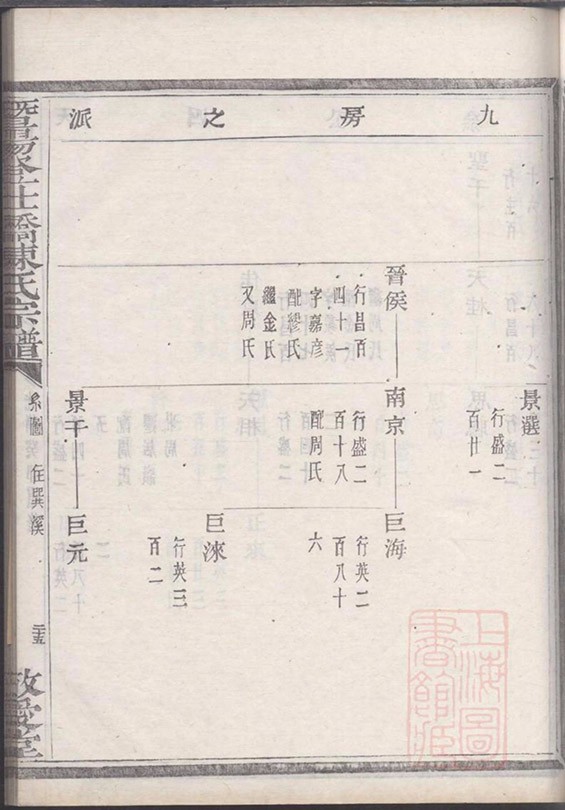 九房之派
景選
行盛二
百廿一
晉侯
行昌百
四十一
字嘉彦
配繆氏
繼金氏
又周氏
南京
行盛二
百十八
配周氏
巨海
行英二
百八十
六
巨淶
行英三
百二
景千
巨元
暨陽
橋陳氏宗譜
系圖
在巽溪
二十五
敬愛堂
上海圖書館藏